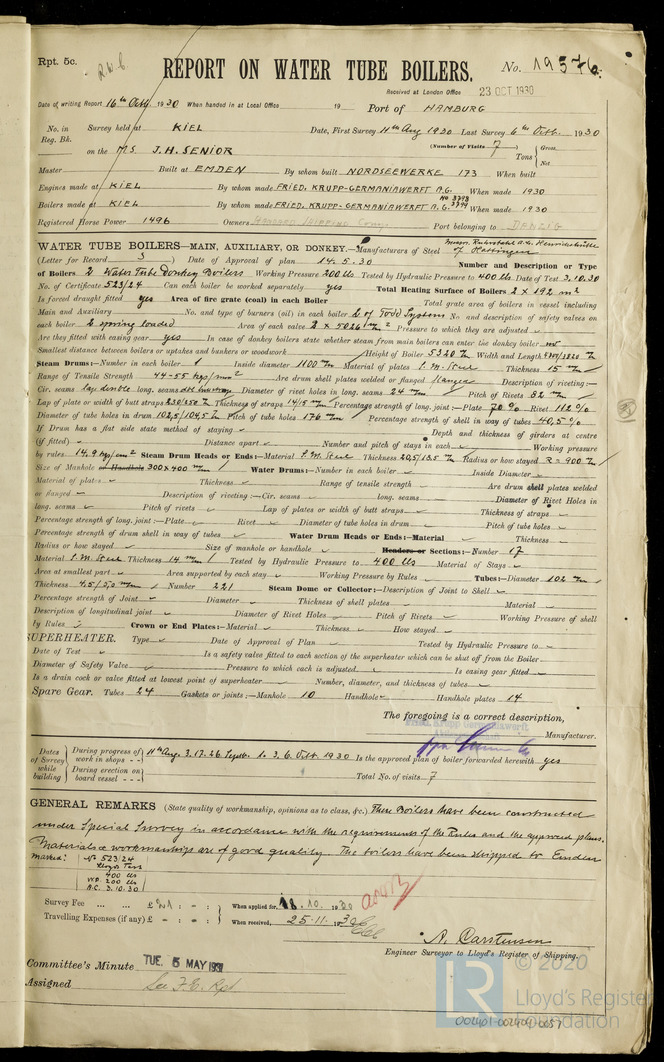 Rpt. 5c.
REPORT ON WATER TUBE BOILERS.
No. 19576
Received at London Office 23 OCT 1930
Date of writing Report 16th Octb. 1930 When handed in at Local Office 19 Port of HAMBURG
No. in Reg. Bk. Survey held at KIEL Date, First Survey 11th Aug 1930 Last Survey 6th Octb. 1930
(Number of Visits 7)
on the M.S. J.H. SENIOR Tons Gross Net
Master Built at EMDEN By whom built NORDSEEWERKE 173 When built
Engines made at KIEL By whom made FRIED. KRUPP-GERMANIAWERFT A.G. When made 1930
Boilers made at KIEL By whom made FRIED. KRUPP-GERMANIAWERFT A.G. No 3798 3799 When made 1930
Registered Horse Power 1496 Owners Port belonging to DANZIG
WATER TUBE BOILERS—MAIN, AUXILIARY, OR DONKEY.—Manufacturers of Steel Messrs. Ruhrstahl A.G. Henrichshütte of Hattingen
(Letter for Record S) Date of Approval of plan 14.5.30 Number and Description or Type
of Boilers 2 Water Tube Donkey Boilers Working Pressure 200 lbs Tested by Hydraulic Pressure to 400 lbs Date of Test 3.10.30
No. of Certificate 523/24 Can each boiler be worked separately yes Total Heating Surface of Boilers 2 x 192 m²
Is forced draught fitted yes Area of fire grate (coal) in each Boiler Total grate area of boilers in vessel including
Main and Auxiliary No. and type of burners (oil) in each boiler 2 of Todd System No. and description of safety valves on
each boiler 2 spring loaded Area of each valve 2 x 5026 mm² Pressure to which they are adjusted
Are they fitted with easing gear yes In case of donkey boilers state whether steam from main boilers can enter the donkey boiler no
Smallest distance between boilers or uptakes and bunkers or woodwork Height of Boiler 5320 mm Width and Length
Steam Drums:—Number in each boiler 1 Inside diameter 1100 mm Material of plates S.M. Steel Thickness 15 mm
Range of Tensile Strength 44-55 kg/mm² Are drum shell plates welded or flanged flanged Description of riveting:—
Cir. seams lap double long. seams Diameter of rivet holes in long. seams 24 mm Pitch of Rivets 82 mm
Lap of plate or width of butt straps 230/350 mm Thickness of straps 14/15 mm Percentage strength of long. joint:—Plate 70 % Rivet 112 %
Diameter of tube holes in drum 102,5/104,5 mm Pitch of tube holes 176 mm Percentage strength of shell in way of tubes 40,5 %
If Drum has a flat side state method of staying Depth and thickness of girders at centre
(if fitted) Distance apart Number and pitch of stays in each Working pressure
by rules 14.9 kg/cm² Steam Drum Heads or Ends:—Material S.M. Steel Thickness 20,5/13.5 mm Radius or how stayed R = 900 mm
Size of Manhole or Handhole 300x400 mm Water Drums:—Number in each boiler Inside Diameter
Material of plates Thickness Range of tensile strength Are drum shell plates welded
or flanged Description of riveting:—Cir. seams long. seams Diameter of Rivet Holes in
long. seams Pitch of rivets Lap of plates or width of butt straps Thickness of straps
Percentage strength of long. joint:—Plate Rivet Diameter of tube holes in drum Pitch of tube holes
Percentage strength of drum shell in way of tubes Water Drum Heads or Ends:—Material Thickness
Radius or how stayed Size of manhole or handhole Headers or Sections:—Number 17
Material S.M. Steel Thickness 14 mm Tested by Hydraulic Pressure to 400 lbs Material of Stays
Area at smallest part Area supported by each stay Working Pressure by Rules Tubes:—Diameter 102 mm
Thickness 4.5/5,0 mm Number 221 Steam Dome or Collector:—Description of Joint to Shell
Percentage strength of Joint Diameter Thickness of shell plates Material
Description of longitudinal joint Diameter of Rivet Holes Pitch of Rivets Working Pressure of shell
by Rules Crown or End Plates:—Material Thickness How stayed
SUPERHEATER. Type Date of Approval of Plan Tested by Hydraulic Pressure to
Date of Test Is a safety valve fitted to each section of the superheater which can be shut off from the Boiler
Diameter of Safety Valve Pressure to which each is adjusted Is easing gear fitted
Is a drain cock or valve fitted at lowest point of superheater Number, diameter, and thickness of tubes
Spare Gear. Tubes 24 Gaskets or joints:—Manhole 10 Handhole Handhole plates 14
The foregoing is a correct description,
Fried. Krupp Germaniawerft
Manufacturer.
Dates of Survey while building During progress of work in shops - - 11th Aug. 3. 17. 26. Septb. 1. 3. 6. Octb. 1930 Is the approved plan of boiler forwarded herewith yes
During erection on board vessel - - - Total No. of visits 7
GENERAL REMARKS (State quality of workmanship, opinions as to class, &c.) These Boilers have been constructed
under Special Survey in accordance with the requirements of the Rules and the approved plans.
Materials & workmanship are of good quality. The boilers have been shipped to Emden
marked: No 523/24
Lloyds Test
400 lbs
W.P. 200 lbs
A.C. 3.10.30
Survey Fee ... ... £ : : When applied for, 18.10. 1930
Travelling Expenses (if any) £ : : When received, 25.11. 1930
A. Carstensen
Engineer Surveyor to Lloyd's Register of Shipping.
Committee's Minute TUE. 5 MAY 1931
Assigned See F.E. Rpt.
© 2020
Lloyd's Register
Foundation
002401-002409-0057